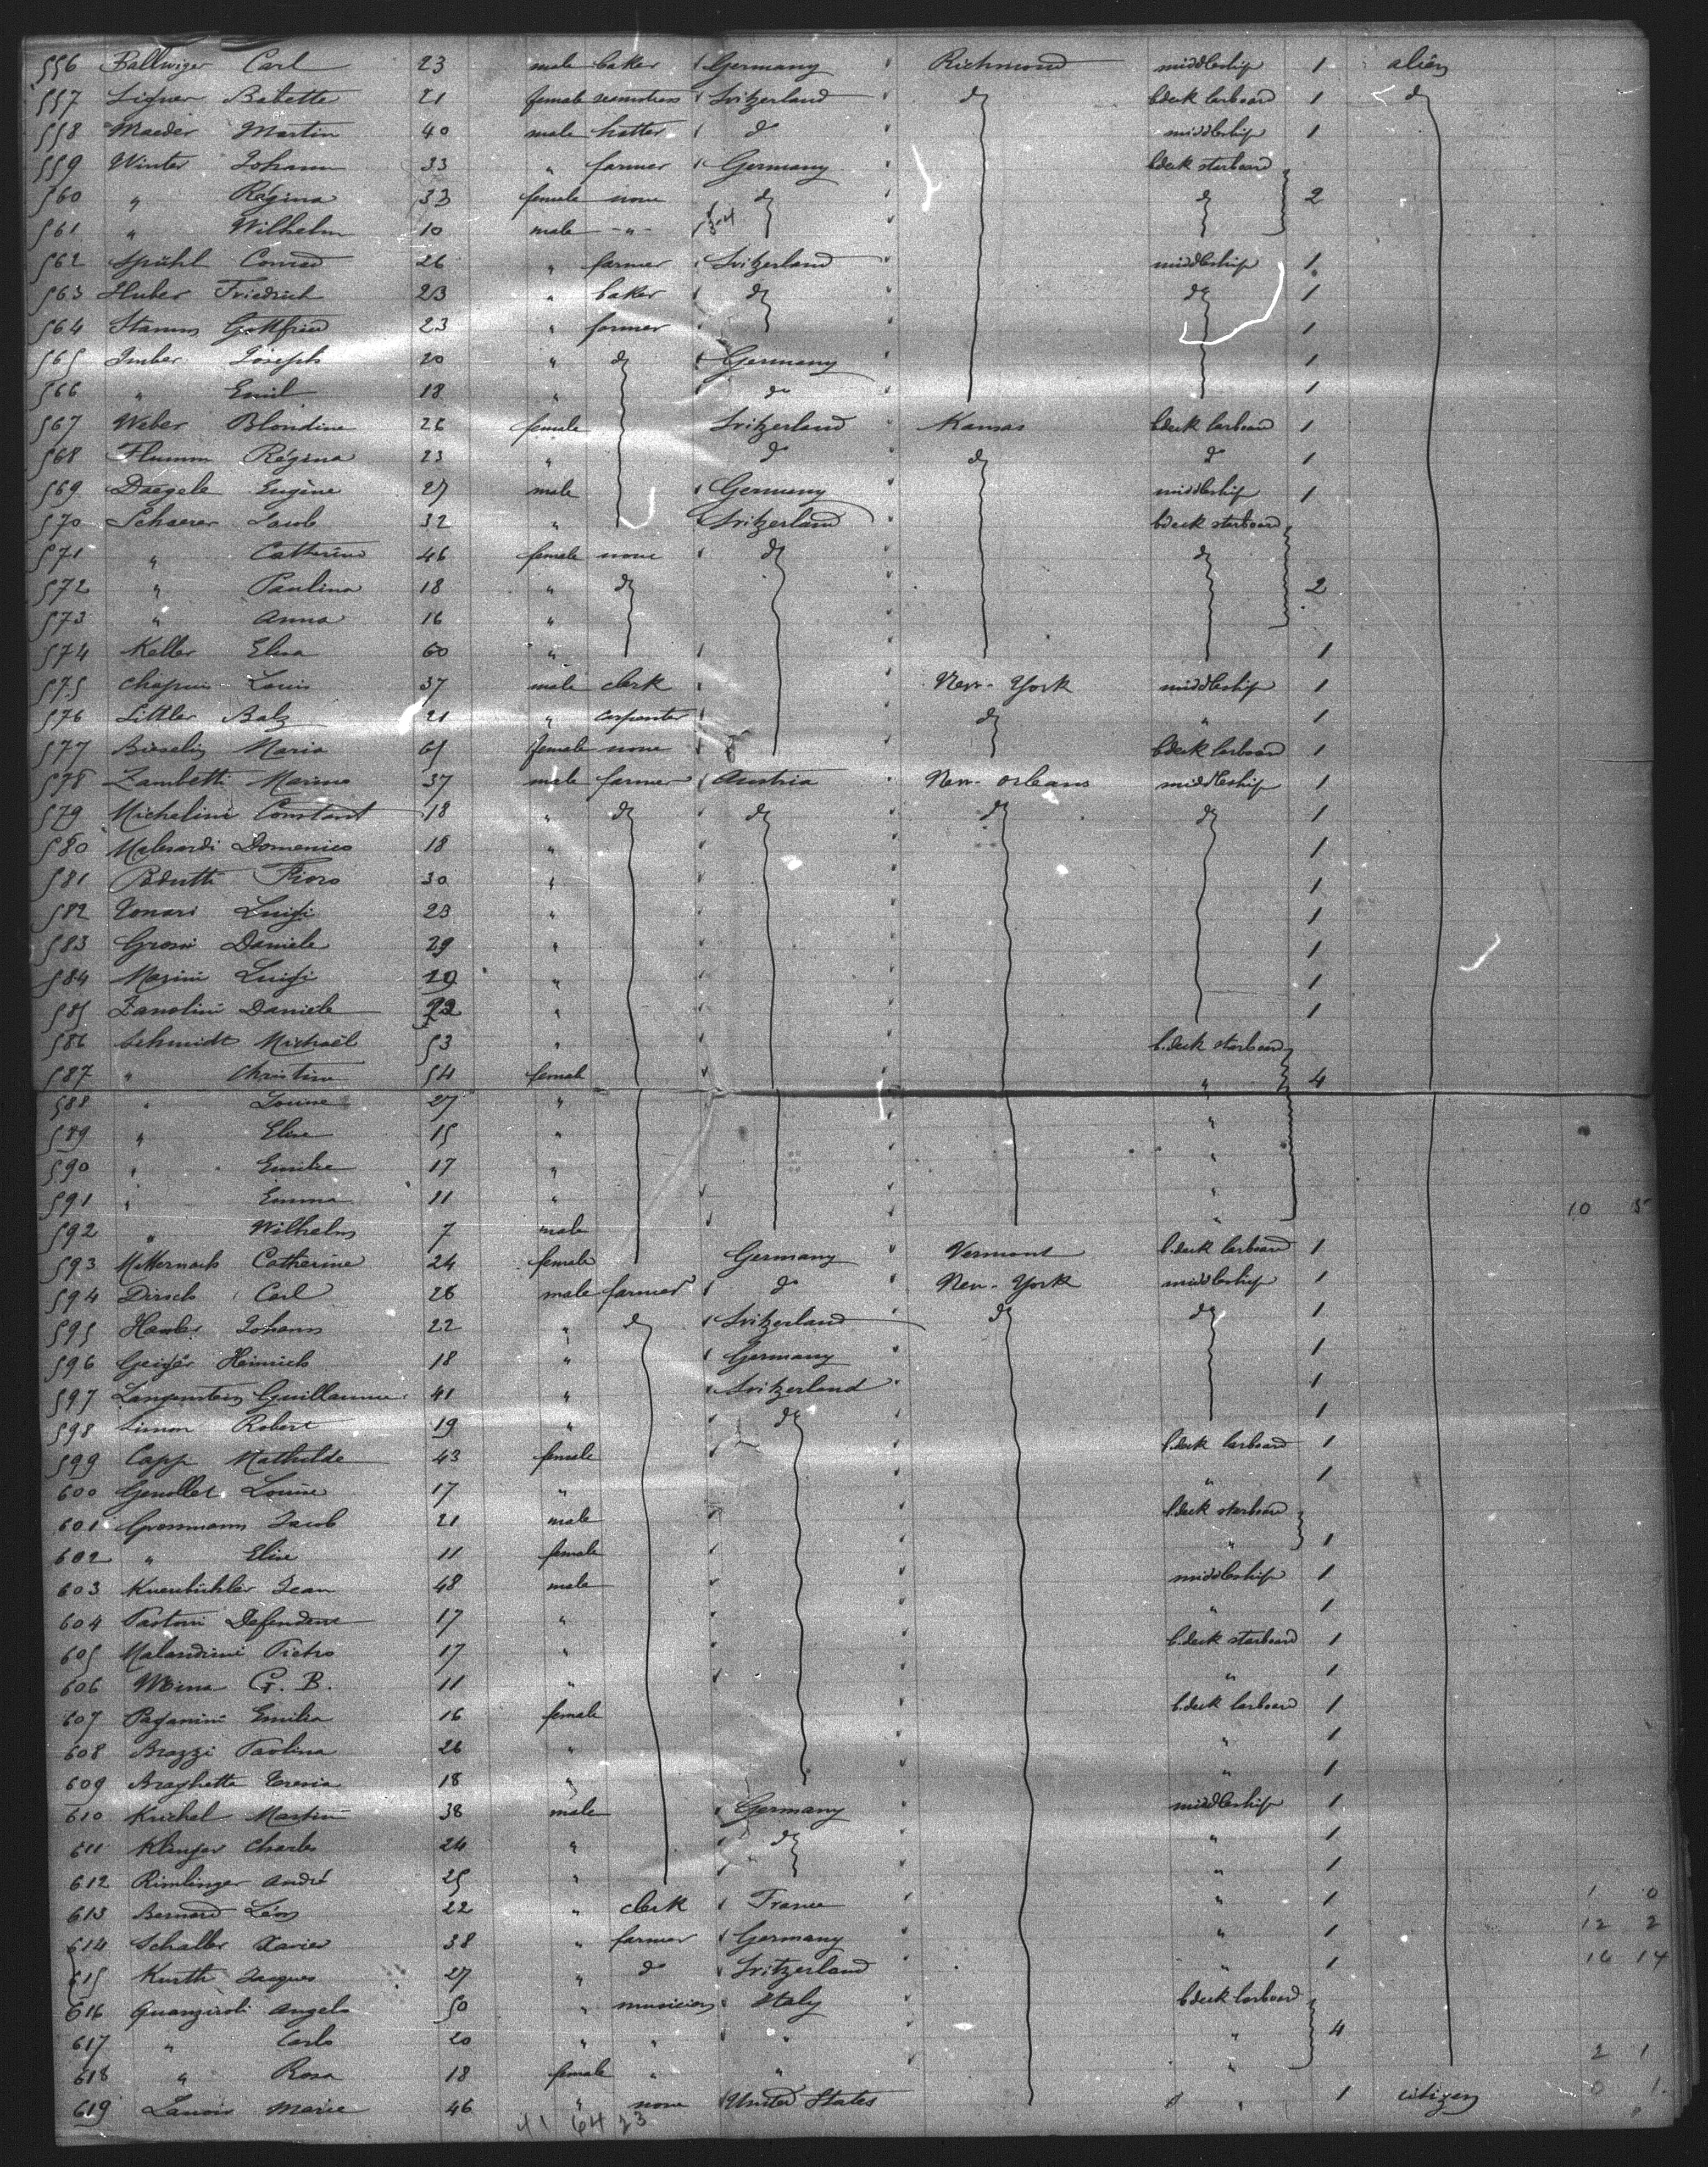 556 Ballwiger Carl 23 male baker Germany Richmond middleship 1 alien
557 Babette 21 female seamstress Switzerland do bdeck larboard 1 do
558 Maeder Martin 40 male hatter do middleship 1
559 Winter Johann 33 " farmer Germany bdeck starboard
560 " Régina 33 female none do do 2
561 " Wilhelm 10 male -"-
562 Spühl Conrad 26 " farmer Switzerland middleship 1
563 Huber Friedrich 23 " baker do do 1
564 Stamm Gottfried 23 " farmer 1
565 Imber Joseph 20 " do Germany 1
566 " Emil 18 " do 1
567 Weber Blondine 26 female Switzerland Kansas bdeck larboard 1
568 Flumm Régina 23 " do do do 1
569 Daegele Eugène 27 male Germany middleship 1
570 Schaerer Jacob 32 " Switzerland bdeck starboard
571 " Catherine 46 female none do do
572 " Paulina 18 " do 2
573 " Anna 16 "
574 Keller Elisa 60 " 1
575 Chapuis Louis 37 male clerk New-York middleship 1
576 Littler Balz 21 " carpenter do " 1
577 Maria female none bdeck larboard 1
578 Zambetti Marino 37 male farmer Austria New-Orleans middleship 1
579 Michelini Constant 18 " do do do do 1
580 Domenico 18 " 1
581 30 " 1
582 Tonari Luigi 23 " 1
583 Grossi Daniele 29 " 1
584 Masini Luigi 29 " 1
585 Zanolini Daniele " 1
586 Schmidt Michaël 53 " b.deck starboard
587 " Christine 54 female " 4
588 " Louise 27 " "
589 " Elise 15 " "
590 " Emilie 17 " "
591 " Emma 11 " " 10 5
592 " Wilhelm 7 male "
593 Catherine 24 female Germany Vermont b.deck larboard 1
594 Dirsch Carl 26 male farmer do New-York middleship 1
595 Johann 22 " do Switzerland do do 1
596 Geiger Heinrich 18 " Germany 1
597 Langenstein Guillaume 41 " Switzerland 1
598 Simon Robert 19 " do 1
599 Capp Mathilde 43 female b.deck larboard 1
600 Genollet Louise 17 " " 1
601 Grossmann Jacob 21 male bdeck starboard
602 " Elise 11 female " 1
603 Kuenbühler Jean 48 male middleship 1
604 Defendente 17 " " 1
605 Malandrini Pietro 17 " b.deck starboard 1
606 G. B. 11 " " 1
607 Paganini Emilia 16 female b.deck larboard 1
608 Brazzi Paolina 26 " " 1
609 Braghetta Teresia 18 " " 1
610 Krichel Martin 38 male Germany middleship 1
611 Klinger Charles 24 " do " 1
612 Rimlinger André 25 " " 1
613 Bernard Léon 22 " clerk France " 1 1 0
614 Schaller Xavier 38 " farmer Germany " 1 12 2
615 Kurth Jacques 27 " do Switzerland " 1 16 14
616 Quanziroli Angelo 50 " musician Italy bdeck larboard
617 " Carlo 20 " " " " 4
618 " Rosa 18 female " " " 2 1
619 Lanoir Marie 46 " none United States " 1 citizen 0 1
41 64 23